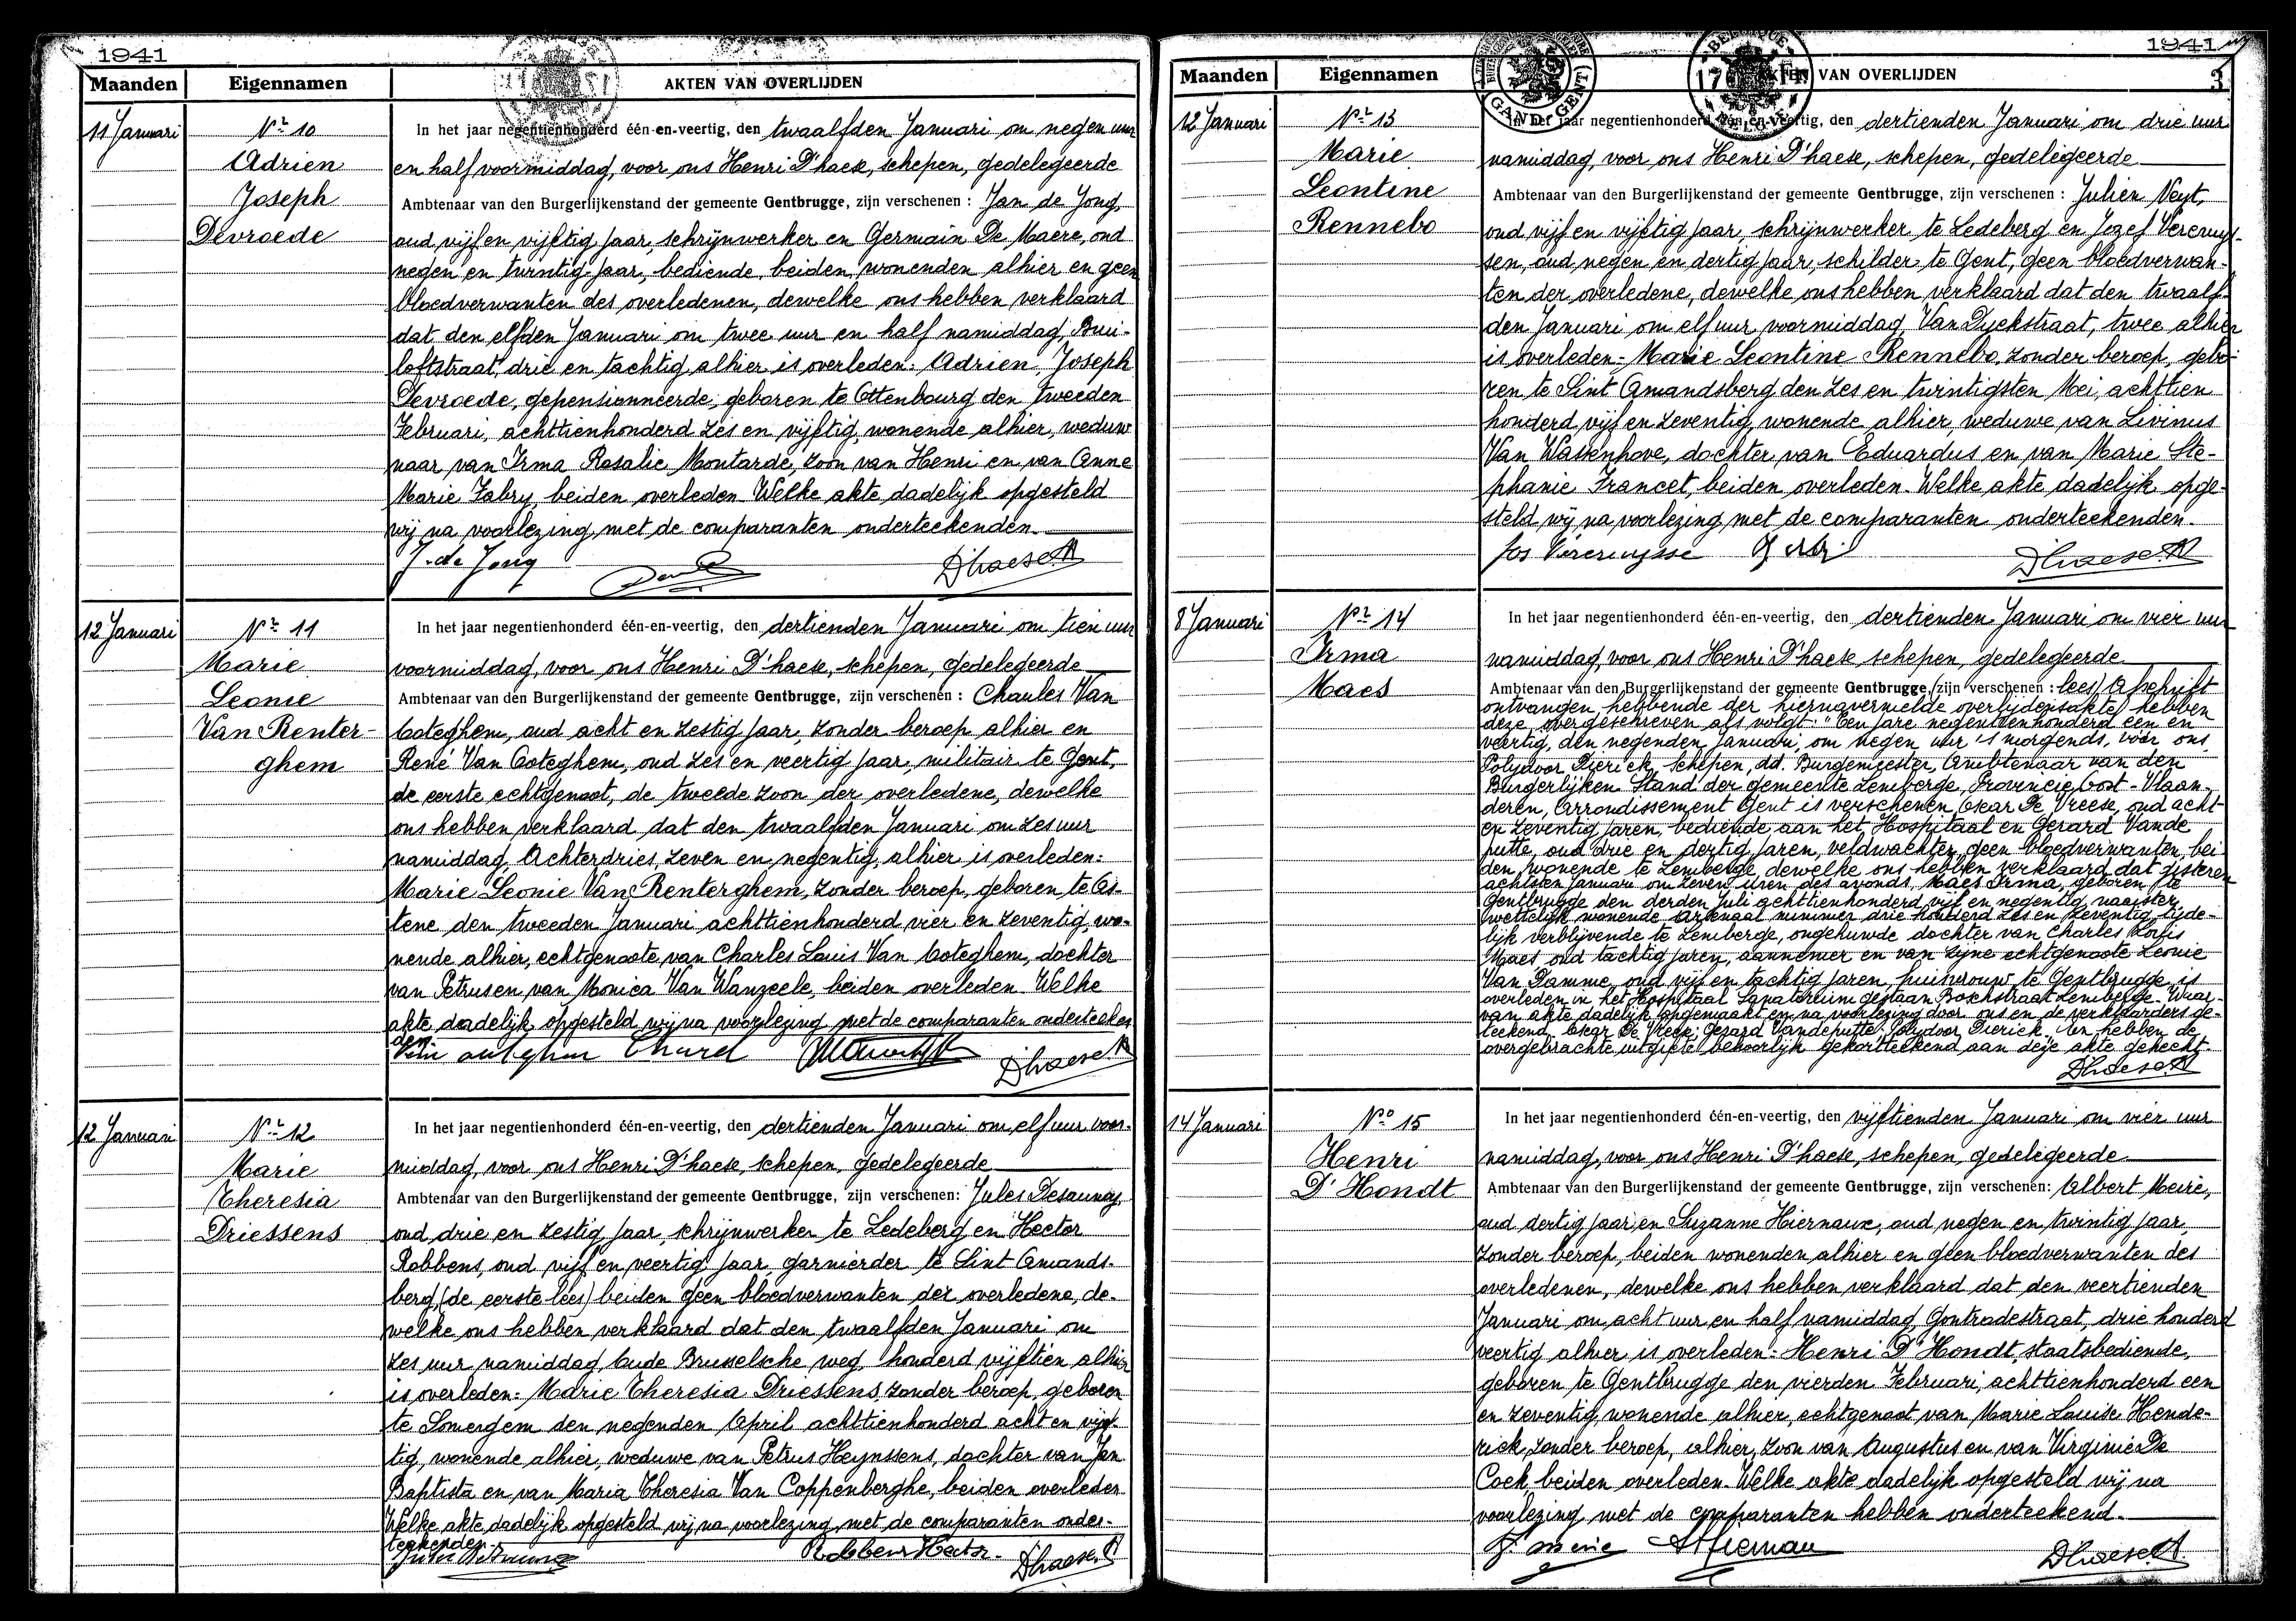 1941
Maanden Eigennamen AKTEN VAN OVERLIJDEN
11 Januari
Nr 10
Adrien
Joseph
Devroede
In het jaar negentienhonderd één-en-veertig, den twaalfden Januari om negen uur
en half voormiddag, voor ons Henri D'haese, schepen, gedelegeerde
Ambtenaar van den Burgerlijkenstand der gemeente Gentbrugge, zijn verschenen : Jan de Jong,
oud vijf en vijftig jaar, schrijnwerker en Germain De Maere, oud
negen en twintig jaar, bediende, beiden wonenden alhier en geen
bloedverwanten des overledenen, dewelke ons hebben verklaard
dat den elfden Januari om twee uur en half namiddag, Bui-
loftstraat, drie en tachtig alhier is overleden: Adrien Joseph
Devroede, gepensionneerde, geboren te Ottenbourg den tweeden
Februari, achttienhonderd zes en vijftig, wonende alhier, weduw
naar van Irma Rosalie Moutarde, zoon van Henri en van Anne
Marie Fabry, beiden overleden. Welke akte dadelijk opgesteld
wij na voorlezing met de comparanten onderteekenden.
J. de Jong D'haese H
12 Januari
Nr 11
Marie
Leonie
Van Renter-
ghem
In het jaar negentienhonderd één-en-veertig, den dertienden Januari om tien uur
voormiddag, voor ons Henri D'haese, schepen, gedelegeerde
Ambtenaar van den Burgerlijkenstand der gemeente Gentbrugge, zijn verschenen : Charles Van
Coteghem, oud acht en zestig jaar, zonder beroep alhier en
René Van Coteghem, oud zes en veertig jaar, militair te Gent,
de eerste echtgenoot, de tweede zoon der overledene, dewelke
ons hebben verklaard dat den twaalfden Januari om zes uur
namiddag, Achterdries, zeven en negentig, alhier is overleden:
Marie Leonie Van Renterghem, zonder beroep, geboren te As-
tene den tweeden Januari achttienhonderd vier en zeventig, wo-
nende alhier, echtgenoote van Charles Louis Van Coteghem, dochter
van Petrus en van Monica Van Wanzeele, beiden overleden. Welke
akte dadelijk opgesteld wij na voorlezing met de comparanten onderteeken
den.
Charel D'haese H
12 Januari
Nr 12
Marie
Theresia
Driessens
In het jaar negentienhonderd één-en-veertig, den dertienden Januari om elf uur voor-
middag, voor ons Henri D'haese, schepen, gedelegeerde
Ambtenaar van den Burgerlijkenstand der gemeente Gentbrugge, zijn verschenen: Jules Desaunoy,
oud drie en zestig jaar, schrijnwerker te Ledeberg en Hector
Robbens, oud vijf en veertig jaar, garnierder te Sint Amands-
berg, (de eerste lees) beiden geen bloedverwanten der overledene, de-
welke ons hebben verklaard dat den twaalfden Januari om
zes uur namiddag, Oude Brusselsche weg, honderd vijftien alhier
is overleden: Marie Theresia Driessens, zonder beroep, geboren
te Somergem den negenden April achttienhonderd acht en vijf-
tig, wonende alhier, weduwe van Petrus Heynssens, dochter van Jan
Baptista en van Maria Theresia Van Coppenberghe, beiden overleden
Welke akte dadelijk opgesteld wij na voorlezing met de comparanten onder-
teekenden.
Robbens Hector D'haese H
1941
3
Maanden Eigennamen AKTEN VAN OVERLIJDEN
12 Januari
Nr 13
Marie
Leontine
Rennebo
In het jaar negentienhonderd één-en-veertig, den dertienden Januari om drie uur
namiddag, voor ons Henri D'haese, schepen, gedelegeerde
Ambtenaar van den Burgerlijkenstand der gemeente Gentbrugge, zijn verschenen : Julien Neyt,
oud vijf en vijftig jaar, schrijnwerker te Ledeberg en Jozef Vercruys-
sen, oud negen en dertig jaar, schilder te Gent, geen bloedverwan-
ten der overledene, dewelke ons hebben verklaard dat den twaalf-
den Januari om elf uur voormiddag, Van Dyckstraat, twee alhier
is overleden: Marie Leontine Rennebo, zonder beroep, gebo-
ren te Sint Amandsberg den zes en twintigsten Mei, achttien
honderd vijf en zeventig, wonende alhier, weduwe van Livinus
Van Wassenhove, dochter van Eduardus en van Marie Ste-
phanie Francet, beiden overleden. Welke akte dadelijk opge-
steld wij na voorlezing met de comparanten onderteekenden.
Jos Vercruysse D'haese H
8 Januari
Nr 14
Irma
Maes
In het jaar negentienhonderd één-en-veertig, den dertienden Januari om vier uur
namiddag, voor ons Henri D'haese schepen, gedelegeerde
Ambtenaar van den Burgerlijkenstand der gemeente Gentbrugge, (zijn verschenen : lees) Afschrift
ontvangen hebbende der hiernavermelde overlijdensakte, hebben
deze overgeschreven als volgt: "Een jare negentienhonderd een en
veertig, den negenden Januari, om negen uur 's morgends, voor ons
Polydoor Dierick, schepen, dd. Burgemeester, Ambtenaar van den
Burgerlijken Stand der gemeente Lemberge, Provincie Oost-Vlaan-
deren, Arrondissement Gent is verschenen Oskar De Vreese, oud acht-
en zeventig jaren, bediende aan het Hospitaal en Gerard Vande
putte, oud drie en dertig jaren, veldwachter, geen bloedverwanten, bei-
den wonende te Lemberge, dewelke ons hebben verklaard dat gisteren
achtsten Januari om zeven uren des avonds, Maes Irma, geboren te
Gentbrugge den derden Juli achttienhonderd vijf en negentig, naaister,
wettelijk wonende Arsenaal nummer drie honderd zes en zeventig, tijde-
lijk verblijvende te Lemberge, ongehuwde dochter van Charles Louis
Maes, oud tachtig jaren, aannemer en van zijne echtgenoote Leonie
Van Damme, oud vijf en tachtig jaren, huisvrouw, te Gentbrugge, is
overleden in het Hospitaal Sanatorium gestaan Boschstraat Lemberge. Waar-
van akte dadelijk opgemaakt en na voorlezing door ons en de verklaarders ge-
teekend. Oskar De Vreese; Gerard Vandeputte; Polydoor Dierick. En hebben de
overgebrachte uitgifte behoorlijk gekortteekend aan deze akte gehecht.
D'haese H
14 Januari
No 15
Henri
D'Hondt
In het jaar negentienhonderd één-en-veertig, den vijftienden Januari om vier uur
namiddag, voor ons Henri D'haese, schepen, gedelegeerde
Ambtenaar van den Burgerlijkenstand der gemeente Gentbrugge, zijn verschenen: Albert Meire,
oud dertig jaar en Suzanne Hiernaux, oud negen en twintig jaar,
zonder beroep, beiden wonenden alhier en geen bloedverwanten des
overledenen, dewelke ons hebben verklaard dat den veertienden
Januari om acht uur en half namiddag, Gontrodestraat, drie honderd
veertig alhier is overleden: Henri D'Hondt, staatsbediende,
geboren te Gentbrugge den vierden Februari, achttienhonderd een
en zeventig, wonende alhier, echtgenoot van Marie Louise Hende-
rick, zonder beroep, alhier, zoon van Augustus en van Virginie De
Cock, beiden overleden. Welke akte dadelijk opgesteld wij na
voorlezing met de comparanten hebben onderteekend.
D'haese H.